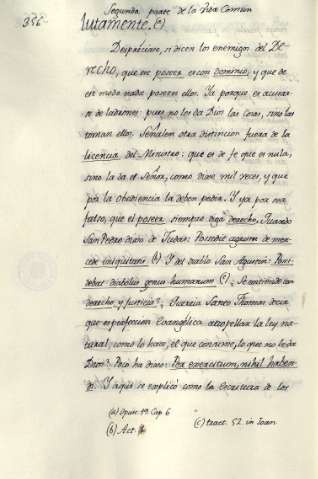 356
Segunda parte de la Vida Comun
lutamente. (a)
Despreciase, si dicen los enemigos del De-
recho, que no posean con dominio, y que de
ese modo nada poseen ellos. Ya porque es acusar
de ladrones: pues no les da Dios las cosas, sino las
toman ellos. Señalen otra distincion fuera de la
licencia del Ministro: que es de fe que es nula,
sino la da el Señor, como dixe mil veces, y que
por la obediencia la deben pedir. Y ya por ser
falso, que el poseer siempre diga derecho. Quando
San Pedro dixo de Judas: Possedit agrum de mer-
cede iniquitatis (b) Y del diablo San Agustin: Possi-
debat diabolus genus humanum (c). Se entiende con
derecho, y justicia? Querria Santo Thomas decir
que es perfeccion Evangelica atropellar la ley na-
tural, como lo hace, el que consume, lo que no le da
Dios? Poco ha dixo: Per exercitum, nihil haben-
di. Y aqui se explicò como la Escritura de los
(a) Opusc. 19. Cap 6
(b) Act. 1
(c) tract. 52. in Joan